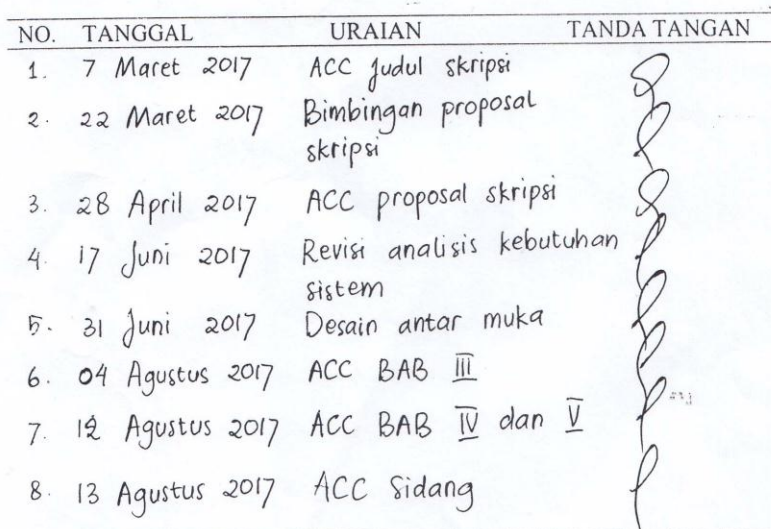 NO. TANGGAL URAIAN TANDA TANGAN
1. 7 Maret 2017 ACC Judul skripsi
2. 22 Maret 2017 Bimbingan proposal
skripsi
3. 28 April 2017 ACC proposal skripsi
4. 17 Juni 2017 Revisi analisis kebutuhan
sistem
5. 31 Juni 2017 Desain antar muka
6. 04 Agustus 2017 ACC BAB III
7. 12 Agustus 2017 ACC BAB IV dan V
8. 13 Agustus 2017 ACC Sidang